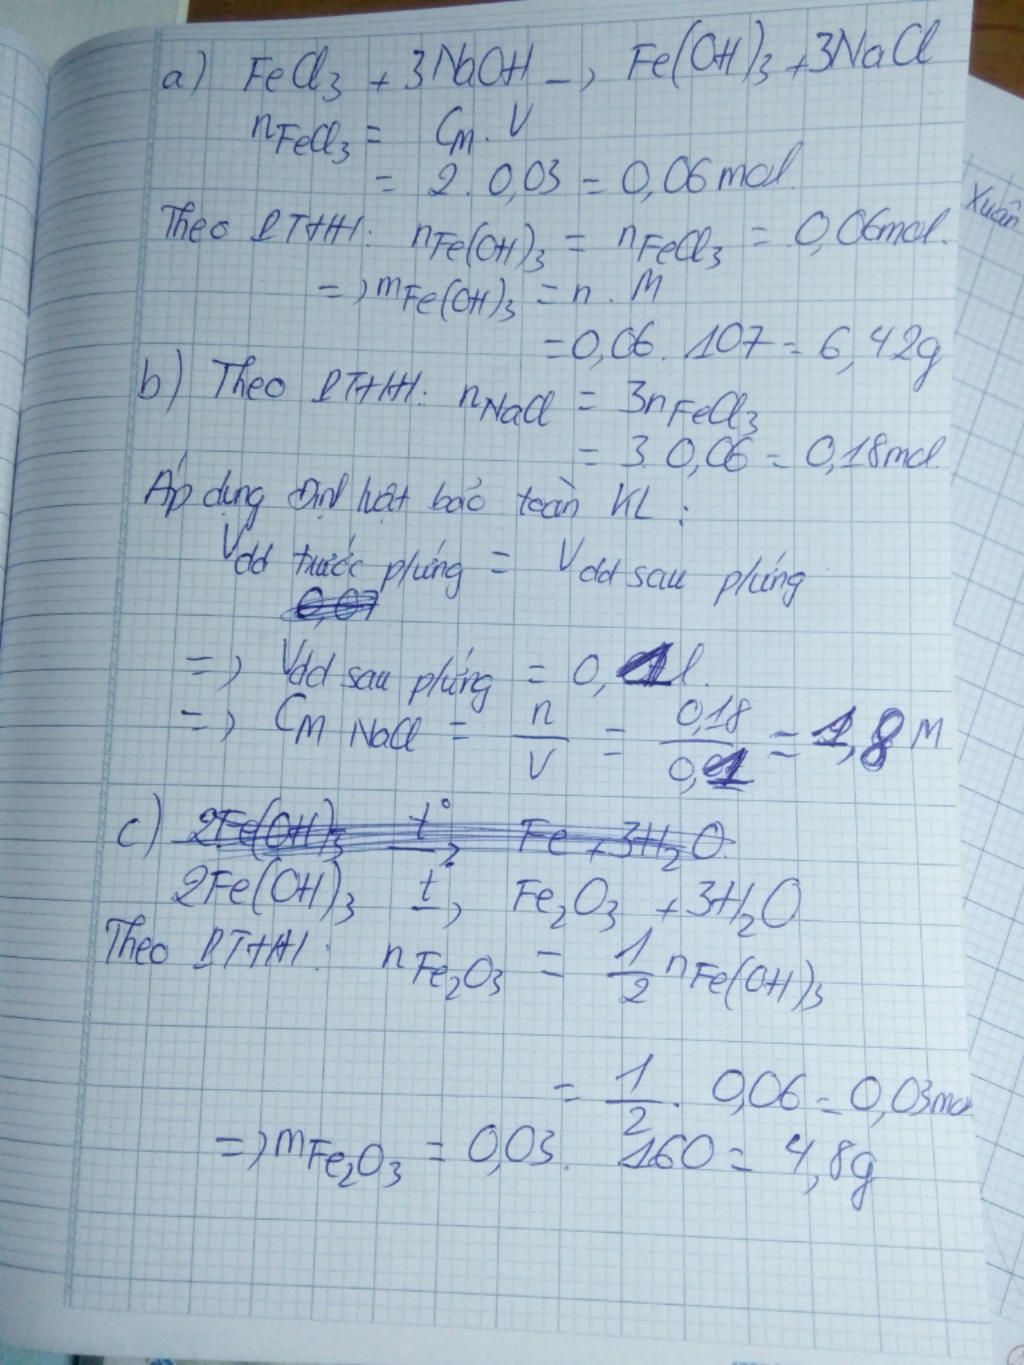 a) FeCl3 + 3NaOH → Fe(OH)3 + 3NaCl
nFeCl3 = CM . V
= 2 . 0,03 = 0,06 mol.
Theo PTHH: nFe(OH)3 = nFeCl3 = 0,06mol.
=> mFe(OH)3 = n . M
= 0,06 . 107 = 6,42g
b) Theo PTHH: nNaCl = 3nFeCl3
= 3. 0,06 = 0,18mol.
Áp dụng Định luật bảo toàn KL :
Vdd trước phứng = Vdd sau phứng
0,07
=> Vdd sau phứng = 0,1l.
=> CM NaCl = n/V = 0,18/0,1 = 1,8 M
c) 2Fe(OH)3 t° → Fe + 3H2O
2Fe(OH)3 t° → Fe2O3 + 3H2O
Theo PTHH: nFe2O3 = 1/2 nFe(OH)3
= 1/2 . 0,06 = 0,03mol
=> mFe2O3 = 0,03. 160 = 4,8g
Xuân